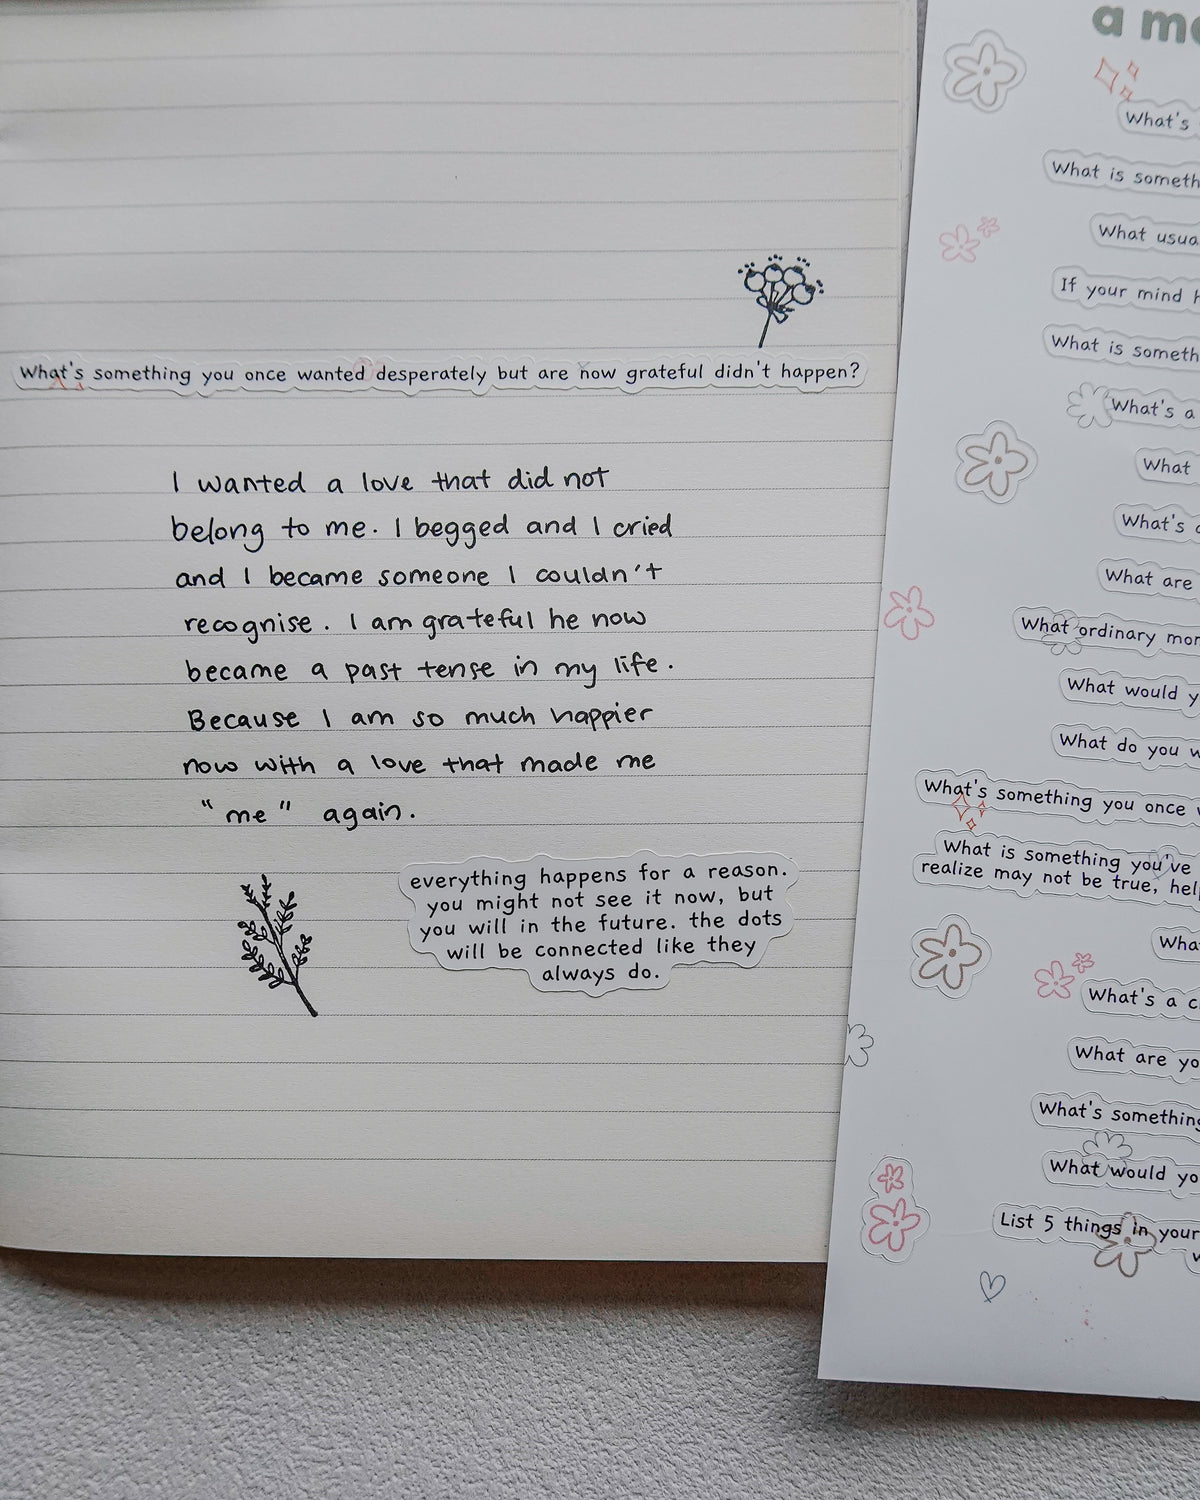 What's something you once wanted desperately but are now grateful didn't happen?
I wanted a love that did not
belong to me. I begged and I cried
and I became someone I couldn't
recognise. I am grateful he now
became a past tense in my life.
Because I am so much happier
now with a love that made me
"me" again.
everything happens for a reason.
you might not see it now, but
you will in the future. the dots
will be connected like they
always do.
a
What's
What is
What usua
If your mind
What is
What's a
What
What's
What are
What ordinary
What would
What do you
What's something you once
What is something you've
realize may not be true,
What's a
What are
What's something
What would
List 5 things in your